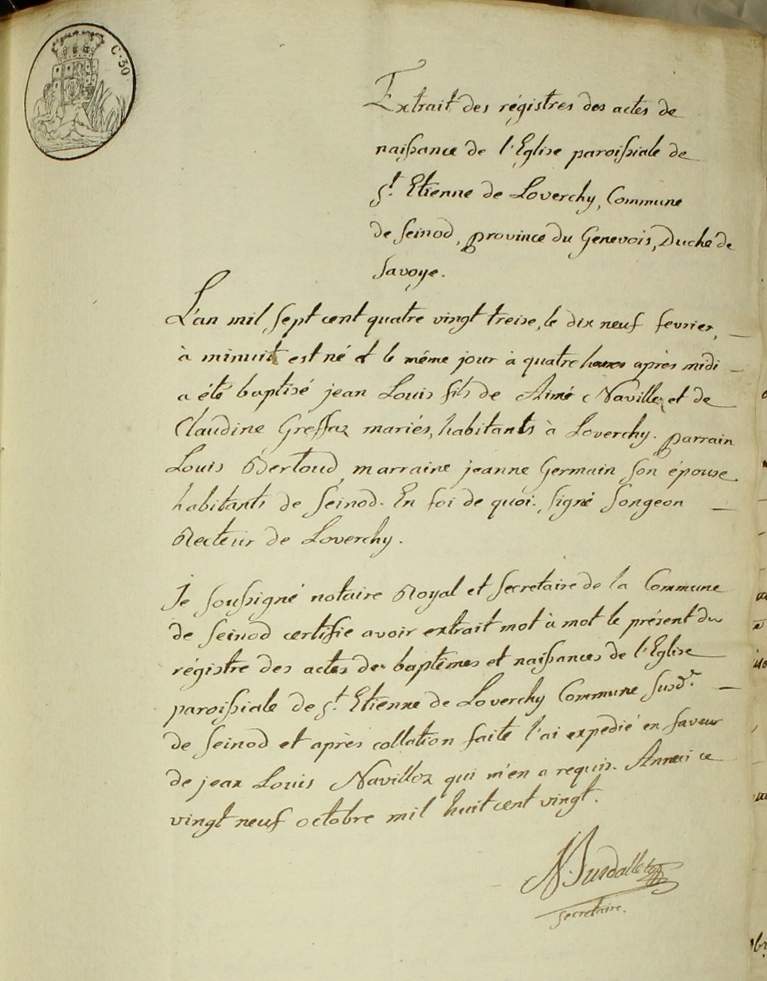 C. 30
Extrait des régistres des actes de
naissance de l'Eglise paroissiale de
St. Etienne de Loverchy, Commune
de Seinod, province du Genevois, Duché de
Savoye.
L'an mil sept cent quatre vingt treise, le dix neuf fevrier,
à minuit est né et le même jour à quatre heures après midi
a été baptisé jean Louis fils de Aimé Navilloz et de
Claudine Greffaz mariés, habitants à Loverchy. parrain
Louis Bertoud, marraine jeanne Germain son épouse
habitants de Seinod. En foi de quoi. signé Songeon
Recteur de Loverchy.
Je soussigné notaire Royal et Secretaire de la Commune
de Seinod certifie avoir extrait mot à mot le présent du
régistre des actes de baptêmes et naissances de l'Eglise
paroissiale de St. Etienne de Loverchy Commune susd.e
de Seinod et après collation faite l'ai expedié en faveur
de jean Louis Navilloz qui m'en a requis. Anneci ce
vingt neuf octobre mil huit cent vingt.
secretaire.